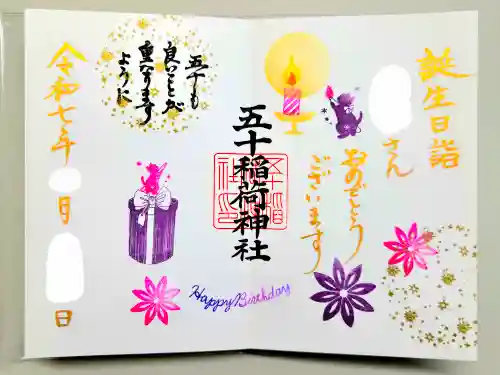 誕生日詣
さん
おめでとう
ございます
五十稲荷神社
Happy Birthday
五十も
良いことが
重なります
ように
令和七年
月
日